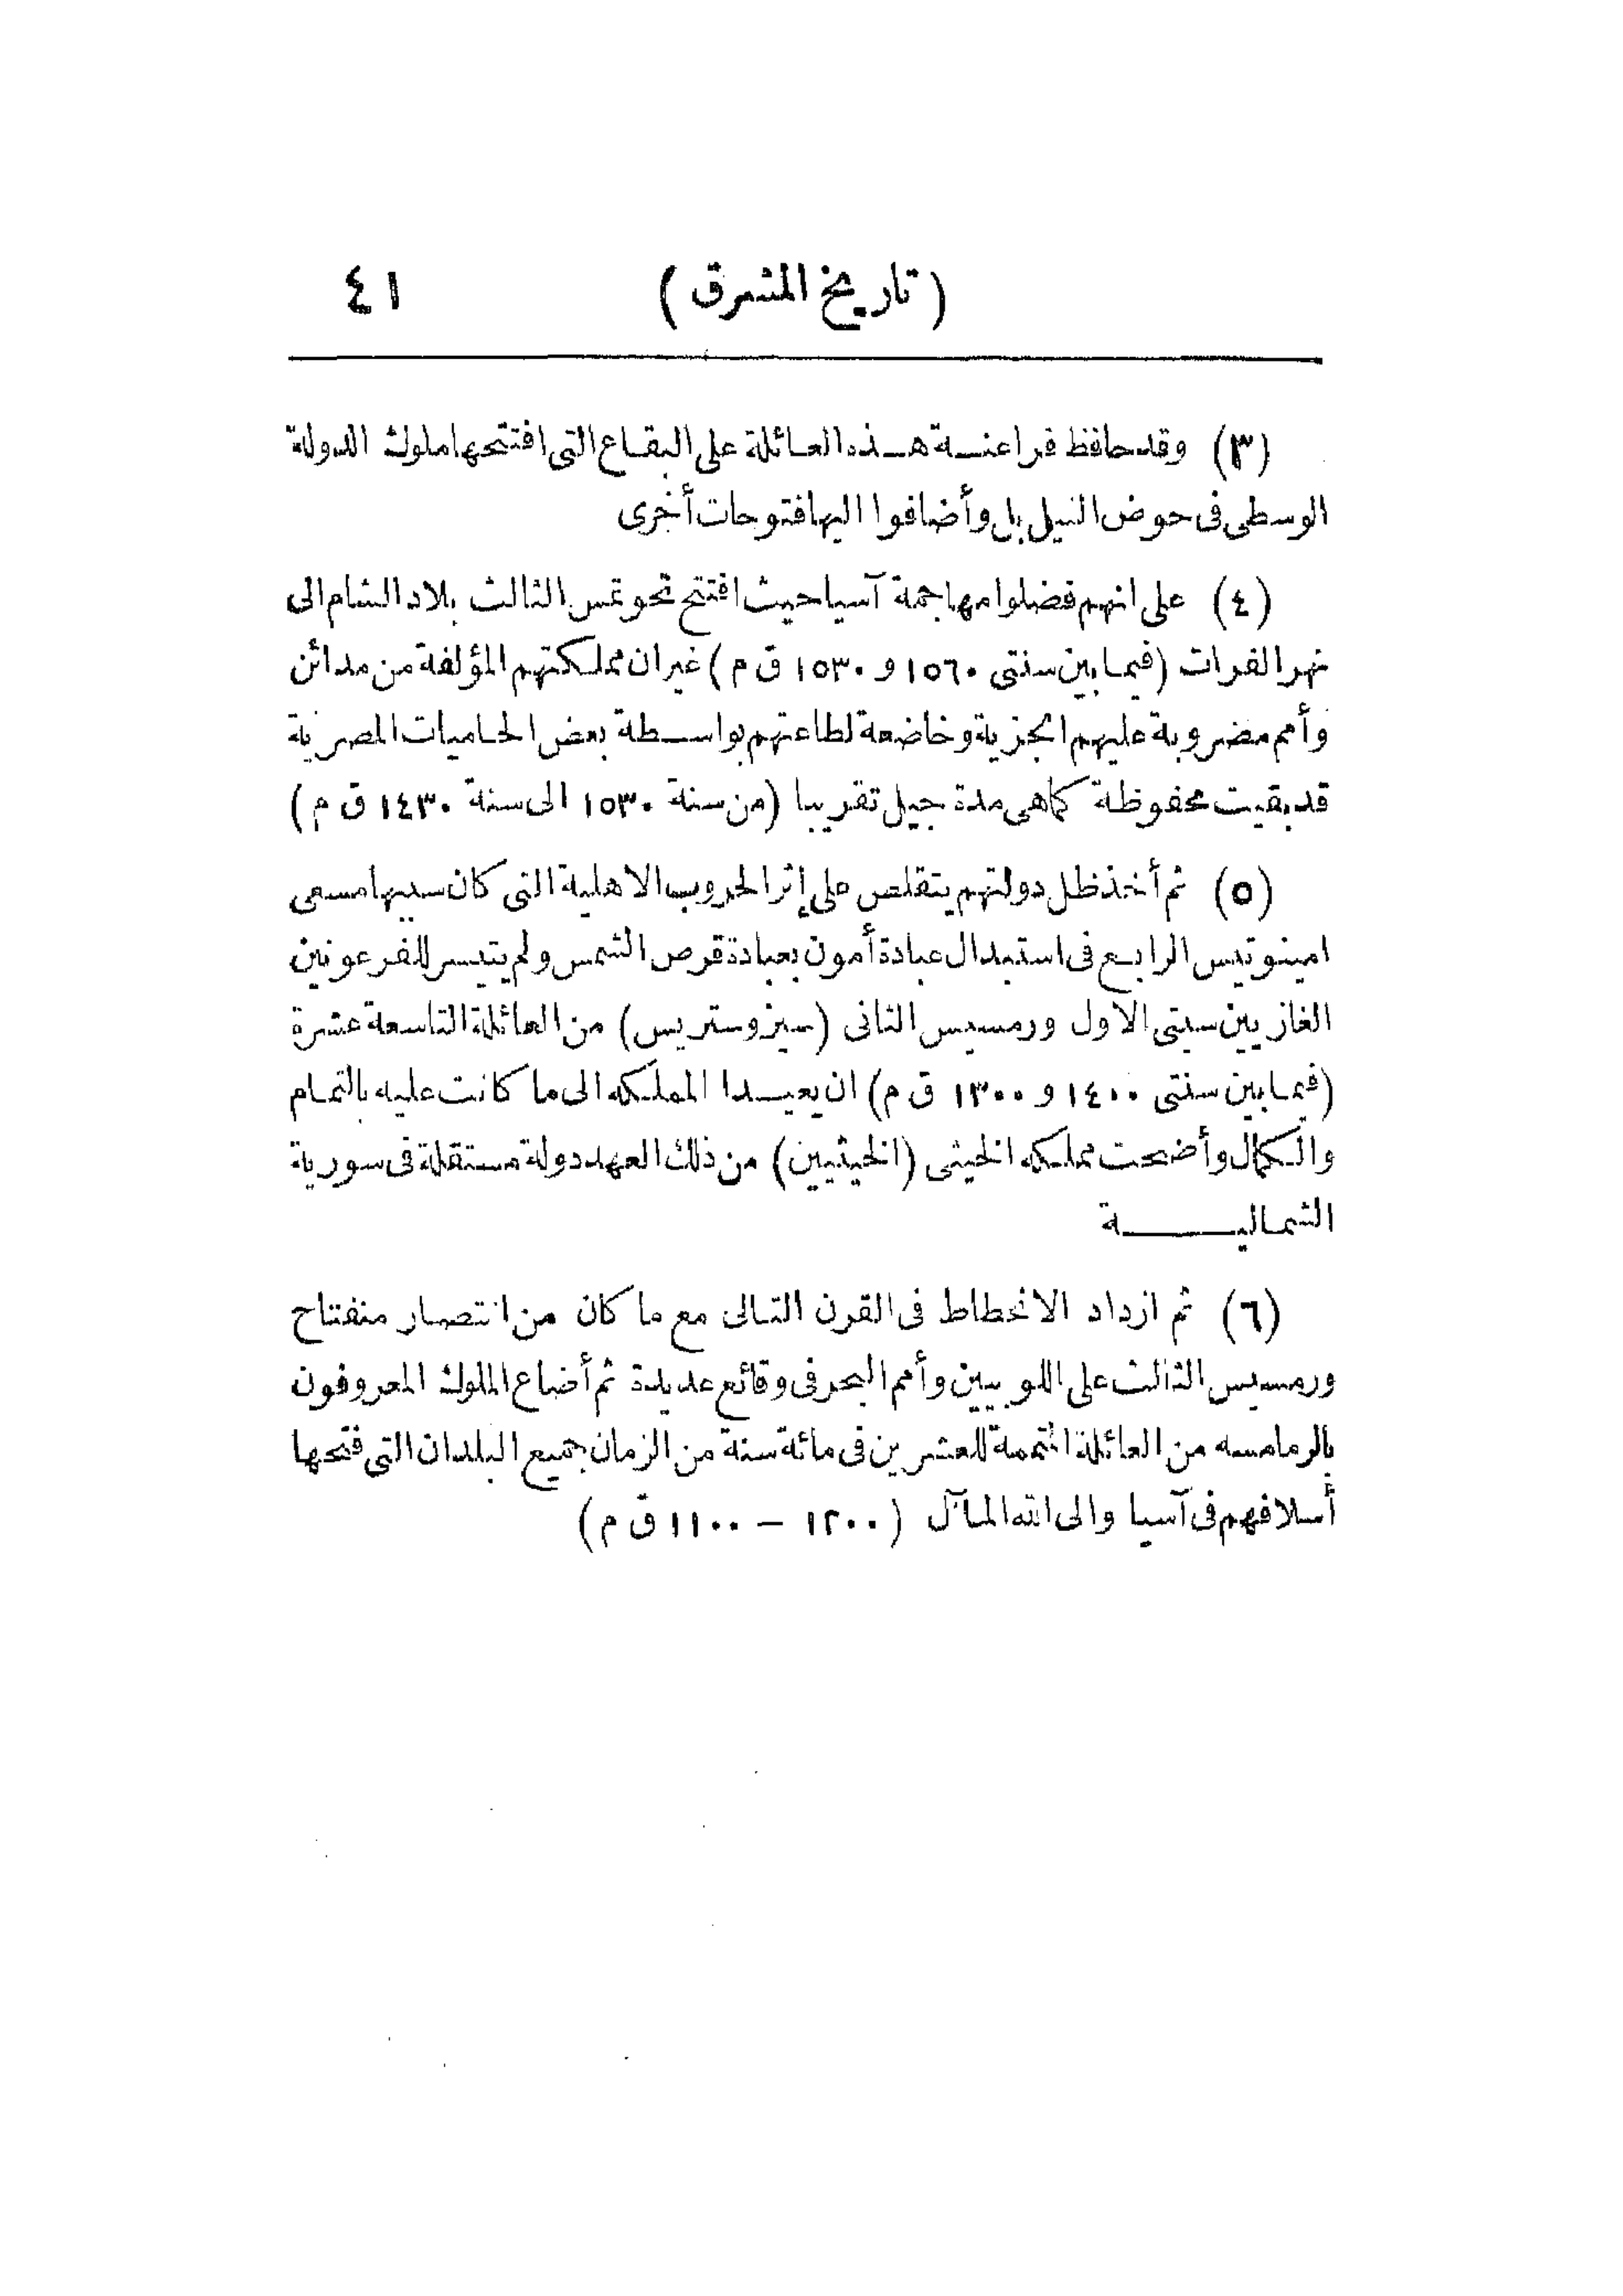 (تاريخ المشرق) ٤١
(٣) وقد حافظ فراعنة هذه العائلة على البقاع التى افتتحها ملوك الدولة
الوسطى فى حوض النيل بل وأضافوا اليها فتوحات أخرى
(٤) على انهم فضلوا مهاجمة آسيا حيث افتتح تحوتمس الثالث بلاد الشام الى
نهر الفرات (فيما بين سنتى ١٥٦٠ و ١٥٣٠ ق م) غير ان مملكتهم المؤلفة من مدائن
وأمم مضروبة عليهم الجزية وخاضعة لطاعتهم بواسطة بعض الحاميات المصرية
قد بقيت محفوظة كما هى مدة جيل تقريبا (من سنة ١٥٣٠ الى سنة ١٤٣٠ ق م)
(٥) ثم أخذ ظل دولتهم يتقلص على إثر الحروب الاهلية التى كان سببها مسعى
امينوتيس الرابع فى استبدال عبادة أمون بعبادة قرص الشمس ولم يتيسر للفرعونين
الغازيين سيتى الاول ورمسيس الثانى (سيزوستريس) من العائلة التاسعة عشرة
(فيما بين سنتى ١٤٠٠ و ١٣٠٠ ق م) ان يعيدا المملكه الى ما كانت عليه بالتمام
والكمال وأضحت مملكه الخيتى (الخيثيين) من ذلك العهد دولة مستقلة فى سورية
الشمالية
(٦) ثم ازداد الانحطاط فى القرن التالى مع ما كان من انتصار منفتاح
ورمسيس الثالث على اللوبيين وأمم البحر فى وقائع عديدة ثم أضاع الملوك المعروفون
بالرمامسه من العائلة المتممة للعشرين فى مائة سنة من الزمان جميع البلدان التى فتحها
أسلافهم فى آسيا والى الله المآل (١٢٠٠ – ١١٠٠ ق م)